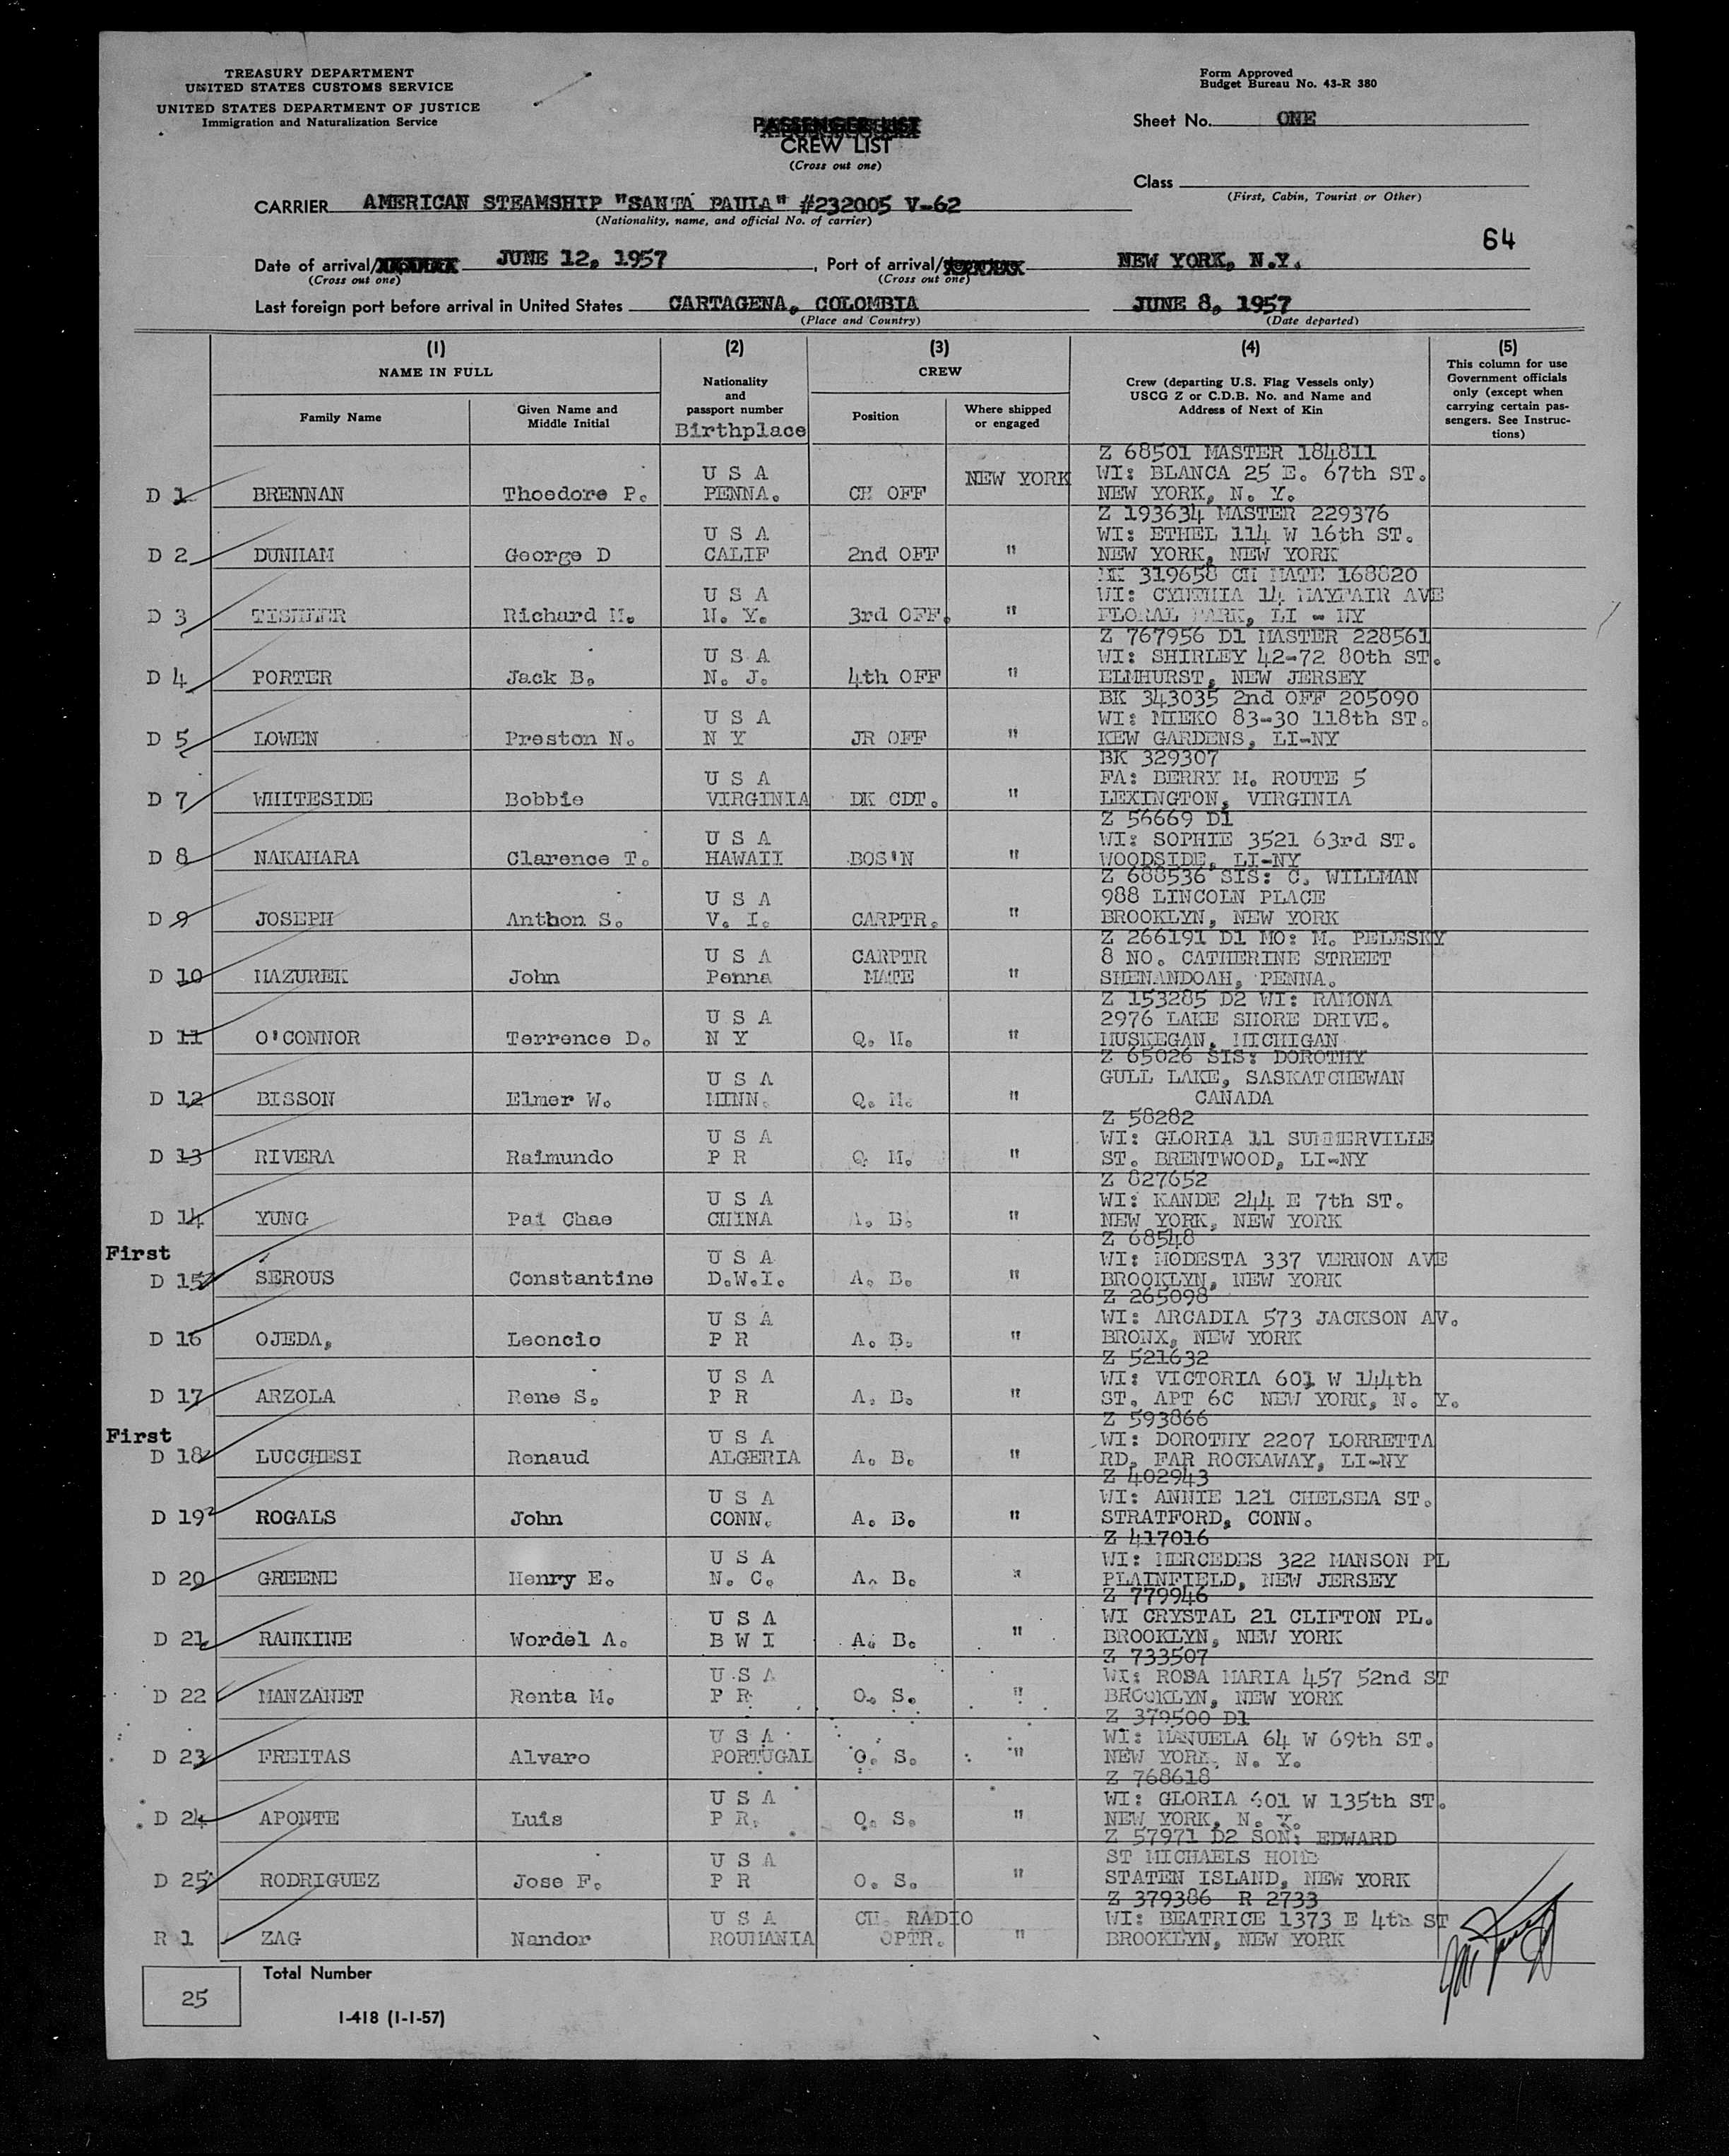 TREASURY DEPARTMENT
UNITED STATES CUSTOMS SERVICE
UNITED STATES DEPARTMENT OF JUSTICE
Immigration and Naturalization Service
Form Approved
Budget Bureau No. 43-R 380
PASSENGER LIST
CREW LIST
(Cross out one)
Sheet No. ONE
Class
(First, Cabin, Tourist or Other)
CARRIER AMERICAN STEAMSHIP "SANTA PAULA" #232005 V-62
(Nationality, name, and official No. of carrier)
64
Date of arrival/ JUNE 12, 1957, Port of arrival/ NEW YORK, N.Y.
(Cross out one) (Cross out one)
Last foreign port before arrival in United States CARTAGENA, COLOMBIA JUNE 8, 1957
(Place and Country) (Date departed)
(1) (2) (3) (4) (5)
NAME IN FULL
Family Name
Given Name and
Middle Initial
Nationality
and
passport number
Birthplace
CREW
Position
Where shipped
or engaged
Crew (departing U.S. Flag Vessels only)
USCG Z or C.D.B. No. and Name and
Address of Next of Kin
This column for use
Government officials
only (except when
carrying certain pas-
sengers. See Instruc-
tions)
Z 68501 MASTER 184811
U S A NEW YORK WI: BLANCA 25 E. 67th ST.
D 1 BRENNAN Thoedore P. PENNA. CH OFF NEW YORK, N. Y.
Z 193634 MASTER 229376
U S A WI: ETHEL 114 W 16th ST.
D 2 DUNHAM George D CALIF 2nd OFF " NEW YORK, NEW YORK
BK 319658 CH MATE 168820
U S A WI: CYNTHIA 14 MAYFAIR AVE
D 3 TISHLER Richard M. N. Y. 3rd OFF. " FLORAL PARK, LI - NY
Z 767956 D1 MASTER 228561
U S A WI: SHIRLEY 42-72 80th ST.
D 4 PORTER Jack B. N. J. 4th OFF " ELMHURST, NEW JERSEY
BK 343035 2nd OFF 205090
U S A WI: MIEKO 83-30 118th ST.
D 5 LOWEN Preston N. N Y JR OFF " KEW GARDENS, LI-NY
BK 329307
U S A FA: BERRY M. ROUTE 5
D 7 WHITESIDE Bobbie VIRGINIA DK CDT. " LEXINGTON, VIRGINIA
Z 56669 D1
U S A WI: SOPHIE 3521 63rd ST.
D 8 NAKAHARA Clarence T. HAWAII BOS'N " WOODSIDE, LI-NY
Z 688536 SIS: C. WILLMAN
U S A 988 LINCOLN PLACE
D 9 JOSEPH Anthon S. V. I. CARPTR. " BROOKLYN, NEW YORK
Z 266191 D1 MO: M. PELESKY
U S A CARPTR 8 NO. CATHERINE STREET
D 10 MAZUREK John Penna MATE " SHENANDOAH, PENNA.
Z 153285 D2 WI: RAMONA
U S A 2976 LAKE SHORE DRIVE.
D 11 O'CONNOR Terrence D. N Y Q. M. " MUSKEGAN, MICHIGAN
Z 65026 SIS: DOROTHY
U S A GULL LAKE, SASKATCHEWAN
D 12 BISSON Elmer W. MINN. Q. M. " CANADA
Z 58282
U S A WI: GLORIA 11 SUMMERVILLE
D 13 RIVERA Raimundo P R Q M. " ST. BRENTWOOD, LI-NY
Z 827652
U S A WI: KANDE 244 E 7th ST.
D 14 YUNG Pai Chae CHINA A. B. " NEW YORK, NEW YORK
Z 68548
First U S A WI: MODESTA 337 VERNON AVE
D 15 SEROUS Constantine D.W.I. A. B. " BROOKLYN, NEW YORK
Z 265098
U S A WI: ARCADIA 573 JACKSON AV.
D 16 OJEDA, Leoncio P R A. B. " BRONX, NEW YORK
Z 521632
U S A WI: VICTORIA 601 W 144th
D 17 ARZOLA Rene S. P R A. B. " ST. APT 6C NEW YORK, N. Y.
Z 593866
First U S A WI: DOROTHY 2207 LORRETTA
D 18 LUCCHESI Renaud ALGERIA A. B. " RD, FAR ROCKAWAY, LI-NY
Z 402943
U S A WI: ANNIE 121 CHELSEA ST.
D 19 ROGALS John CONN. A. B. " STRATFORD, CONN.
Z 417016
U S A WI: MERCEDES 322 MANSON PL
D 20 GREENE Henry E. N. C. A. B. " PLAINFIELD, NEW JERSEY
Z 779946
U S A WI CRYSTAL 21 CLIFTON PL.
D 21 RANKINE Wordel A. B W I A. B. " BROOKLYN, NEW YORK
Z 733507
U S A WI: ROSA MARIA 457 52nd ST
D 22 MANZANET Renta M. P R O. S. " BROOKLYN, NEW YORK
Z 379500 D1
U S A WI: MANUELA 64 W 69th ST.
D 23 FREITAS Alvaro PORTUGAL O. S. " NEW YORK, N. Y.
Z 768618
U S A WI: GLORIA 601 W 135th ST.
D 24 APONTE Luis P R. O. S. " NEW YORK, N. Y.
Z 57971 D2 SON: EDWARD
U S A ST MICHAELS HOME
D 25 RODRIGUEZ Jose F. P R O. S. " STATEN ISLAND, NEW YORK
Z 379386 R 2733
U S A CH. RADIO WI: BEATRICE 1373 E 4th ST
R 1 ZAG Nandor ROUMANIA OPTR. " BROOKLYN, NEW YORK
25 Total Number
I-418 (1-1-57)